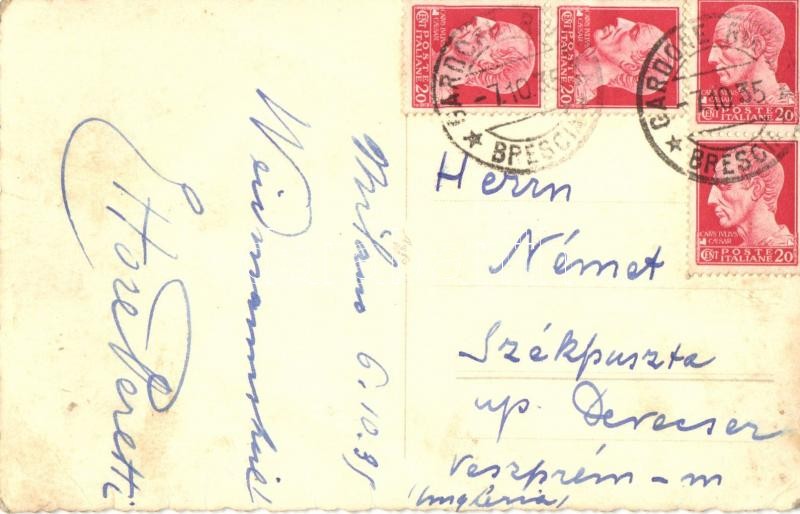 Milano 6.10.35
Weidmannsheil
Ettore Peretti
CENT POSTE ITALIANE 20
CAIVS IVLIVS CAESAR
CENT POSTE ITALIANE 20
CAIVS IVLIVS CAESAR
CAIVS IVLIVS CAESAR
CENT POSTE ITALIANE 20
CAIVS IVLIVS CAESAR
CENT POSTE ITALIANE 20
GARDONE
-7.10.35
★ BRESCIA
GARDONE
-7.10.35
★ BRESCIA
Herrn
Német
Székpuszta
up. Devecser
Veszprém-m
(Ungheria)